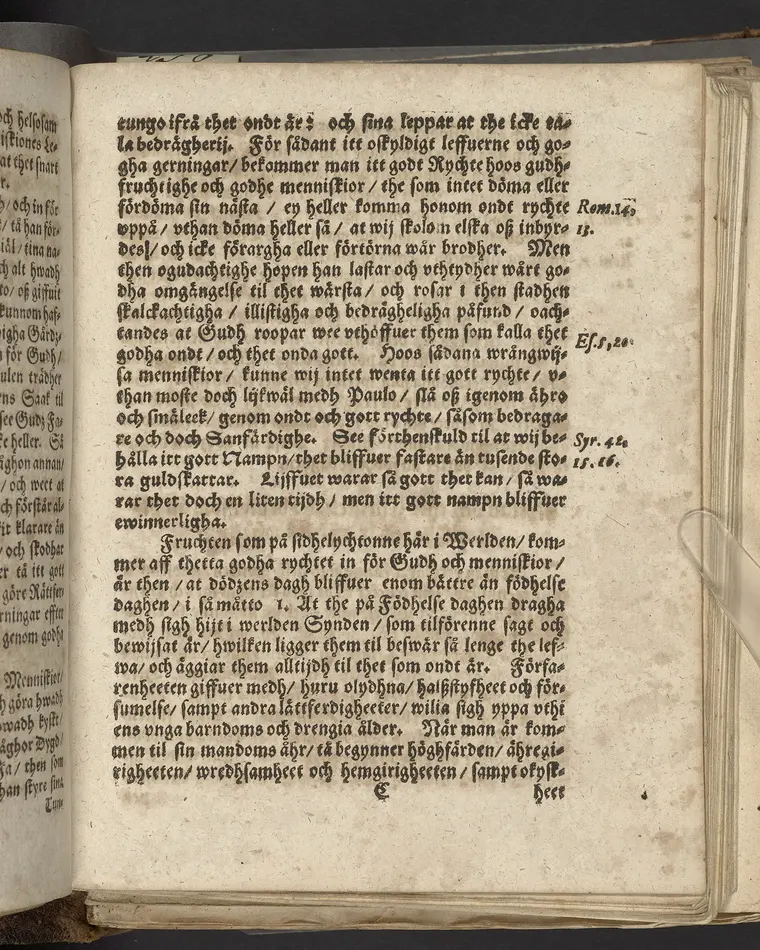 och helsosam
at thet snart
och in för
tå han för
tina na-
alt hwadh
oß giffuit
kunnom haf-
för Gudh/
trädher
Saak til
heller. Så
åghon annan/
och weet at
och förstår al-
klarare än
och skodhar
tå itt gott
göre Rättfer-
effter
genom godhe
Menniskior/
göra hwadh
hwadh kyskt/
Dygd/
then som
han styre sina
Tun-
tungo ifrå thet ondt är: och sina leppar at the icke ta-
la bedrägherij. För sådant itt oskyldigt leffuerne och go-
gha gerningar/ bekommer man itt godt Rychte hoos gudh-
fruchtighe och godhe menniskior / the som intet döma eller
fördöma sin nästa / ey heller komma honom ondt rychte
vppå/ vthan döma heller så / at wij skolom elska oß inbyr-
des/ och icke förargha eller förtörna wår brodher. Men
then ogudachtighe hopen han lastar och vthtydher wårt go-
dha omgängelse til thet wärsta/ och rosar i then stadhen
skalckachtigha / illistigha och bedrägheligha påfund/ oach-
tandes at Gudh roopar wee vthöffuer them som kalla thet
godha ondt / och thet onda gott. Hoos sådana wrångwij-
sa menniskior / kunne wij intet wenta itt gott rychte / v-
than moste doch lijkwäl medh Paulo / slå oß igenom ähro
och smäleek/ genom ondt och gott rychte / såsom bedraga-
re och doch Sanfärdighe. See förthenskuld til at wij be-
hålla itt gott Nampn/ thet bliffuer fastare än tusende sto-
ra guldskattar. Lijffuet warar så gott thet kan / så wa-
rar thet doch en liten tijdh / men itt gott nampn bliffuer
ewinnerligha.
Fruchten som på sidhelychtonne här i Werlden/ kom-
mer aff thetta godha rychtet in för Gudh och menniskior /
är then / at dödzens dagh bliffuer enom bättre än födhelse
daghen / i så måtto 1. At the på Födhelse daghen dragha
medh sigh hijt i werlden Synden / som tilförenne sagt och
bewijsat är/ hwilken ligger them til beswär så lenge the lef-
wa/ och äggiar them alltijdh til thet som ondt är. Förfa-
renheeten giffuer medh/ huru olydhna/ halßstyfheet och för-
sumelse/ sampt andra lättferdigheeter/ wilia sigh yppa vthi
ens vnga barndoms och drengia ålder. När man är kom-
men til sin mandoms åhr/ tå begynner höghfärden/ ähregi-
righeeten/ wredhsamheet och hemgirigheeten / sampt okysk-
C heet
Rom.14,
13.
Es.5,20.
Syr. 42.
15. 16.